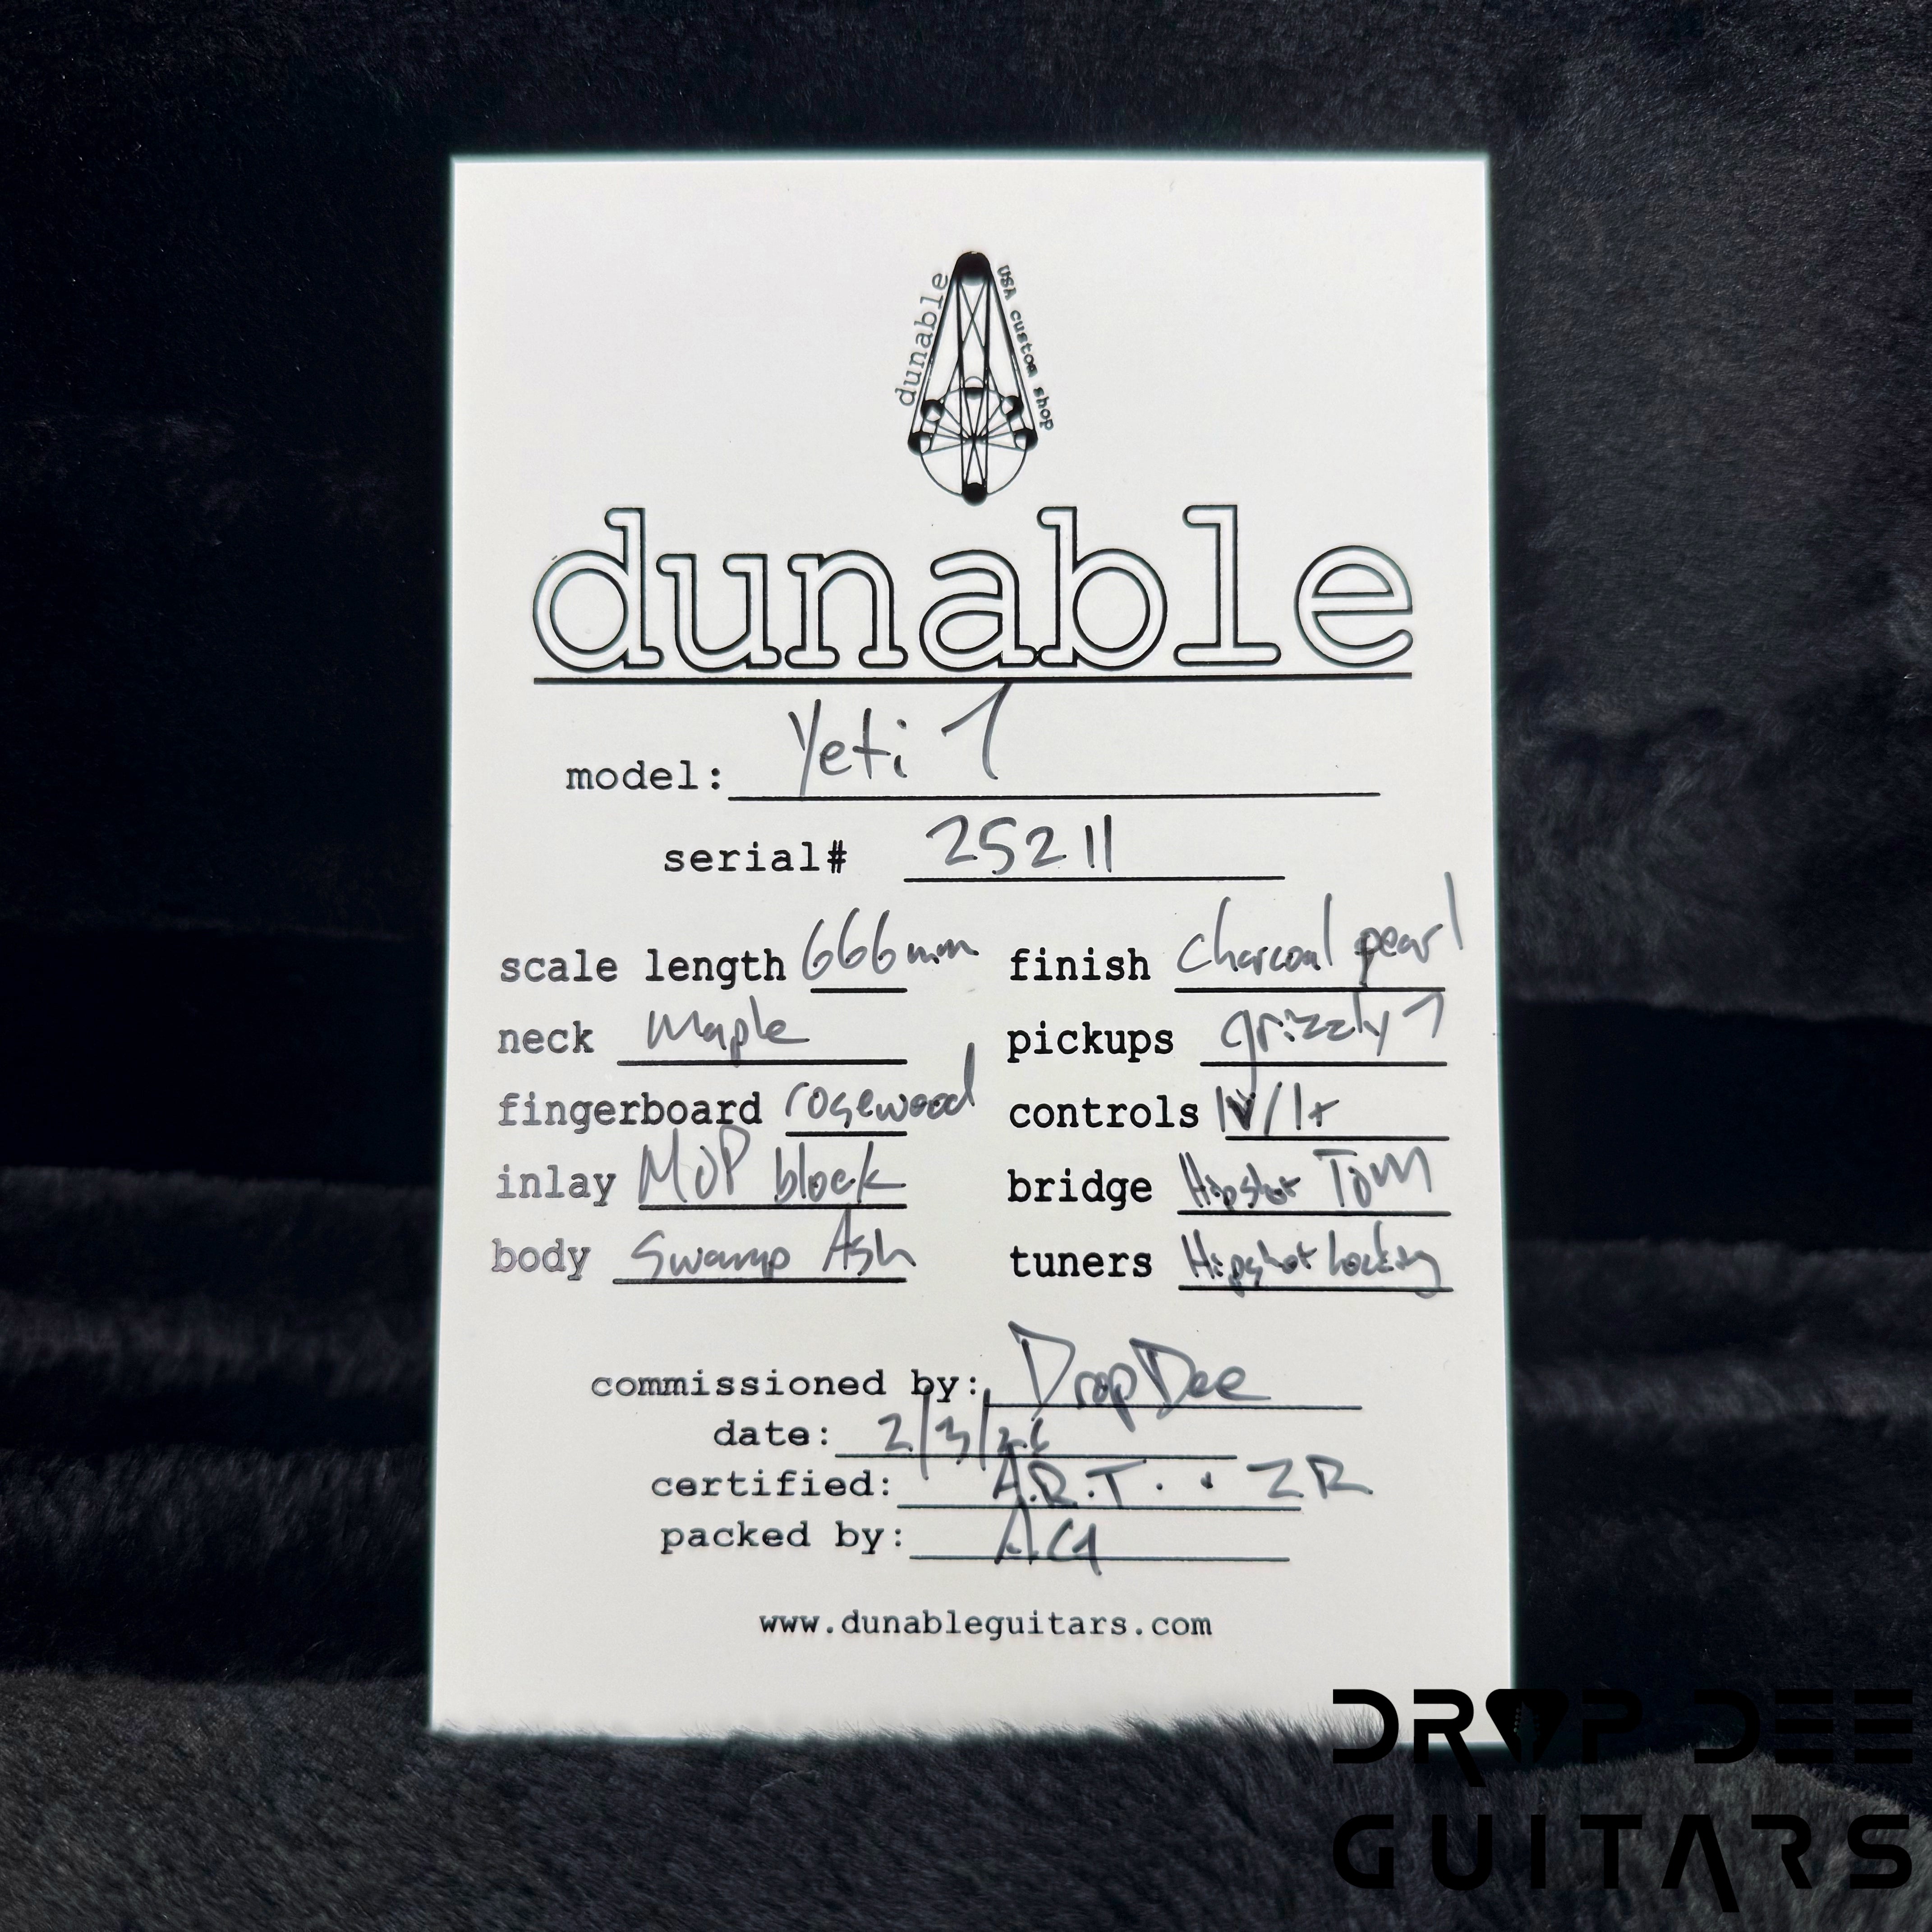 dunable
USA custom shop
dunable
model: Yeti 7
serial# 25211
scale length 666mm
finish charcoal pearl
neck maple
pickups grizzly 7
fingerboard rosewood
controls 1V/1t
inlay MOP block
bridge Hipshot TOM
body Swamp Ash
tuners Hipshot locking
commissioned by: DropDee
date: 2/3/26
certified: A.R.T. · ZR
packed by: AG
www.dunableguitars.com
DROP DEE
GUITARS